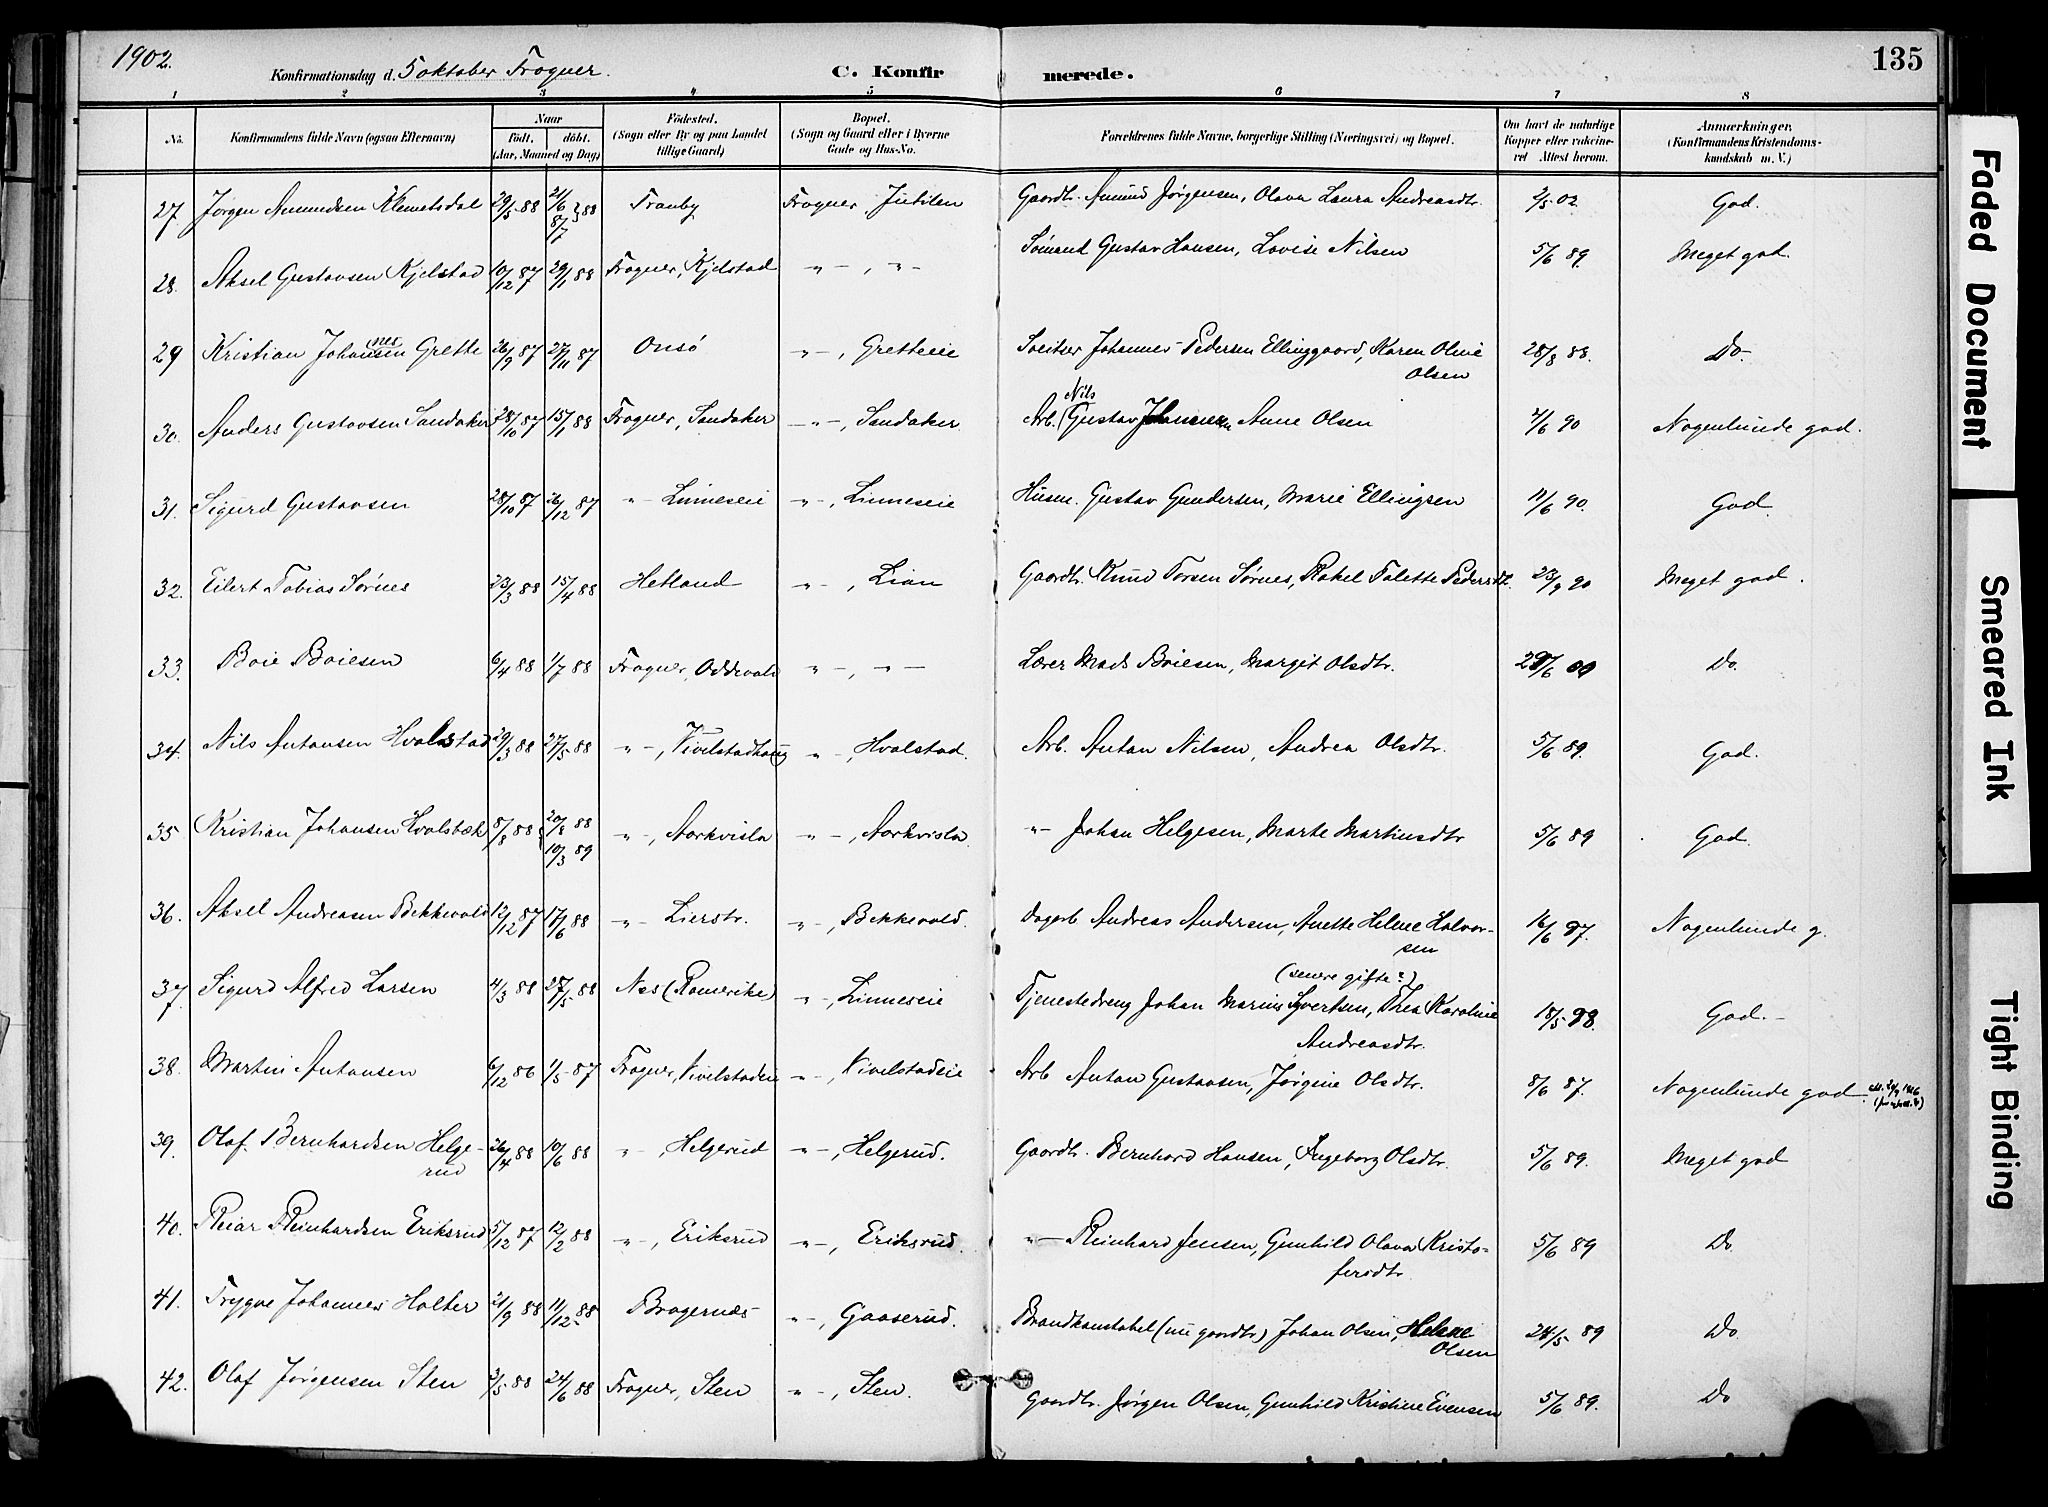 1902.
Konfirmationsdag d. 5 oktober Frogner.
C. Konfir
merede.
135
1 2 3 4 5 6 7 8
No.
Konfirmandens fulde Navn (ogsaa Efternavn)
Naar
födt. döbt.
(Aar, Maaned og Dag)
Födested.
(Sogn eller By og paa Landet
tillige Gaard)
Bopæl.
(Sogn og Gaard eller i Byerne
Gade og Hus-No.
Forældrenes fulde Navne, borgerlige Stilling (Næringsvei) og Bopæl.
Om havt de naturlige
Kopper eller vakcine-
ret Attest herom.
Anmærkninger.
(Konfirmandens Kristendoms-
kundskab m. V.)
27. Jørgen Amundsen Klemetsdal 29/5 88 21/6 8/7 } 88 Tranby Frogner, Jutilen Gaardbr. Amund Jørgensen, Olava Laura Andreasdtr. 2/5 02. God.
28. Aksel Gustavsen Kjelstad 10/12 87 29/1 88 Frogner, Kjelstad " - , " - Sömand Gustav Hansen, Lovise Nilsen 5/6 89. Meget god.
29 Kristian Johansen (nes) Grette 26/9 87 27/11 87 Onsö " - , Gretteeie Johannes Pedersen Ellinggaard, Karen Oline
Olsen 28/8 88. Do.
30. Anders Gustavsen Sandaker 28/10 87 15/1 88 Frogner, Sandaker " - , Sandaker Arb. (Nils Gustav Johansen, Anne Olsen 4/6 90 Nogenlunde god.
31. Sigurd Gustavsen 28/10 87 26/12 87 " - Linneseie " - , Linneseie Husm. Gustav Gundersen, Marie Ellingsen 11/6 90. God.
32. Eilert Tobias Sørnes 23/3 88 15/4 88 Hetland " - , Lian Gaardbr. Knud Torsen Sørnes, Rakel Talette Pedersdt. 23/9 90 Meget god.
33. Boie Boiesen 6/4 88 1/7 88 Frogner, Oddevald " - , " - Lærer Mads Boiesen, Margit Olsdtr. Do.
34. Nils Antonsen Hvalstad 29/3 88 27/5 88 " - , Vivelstadhaug " - , Hvalstad. Arb. Anton Nilsen, Andrea Olsdtr. 5/6 89. God.
35 Kristian Johansen Hvalsbæk 8/8 88 20/8 88 10/3 89 " - , Aorkvisla " - , Aorkvisla. " - Johan Helgesen, Marte Martinsdtr 5/6 89 God.
36. Aksel Andreasen Bekkevold 12/12 87 17/6 88 " - Lierstr. " - , Bekkevold. Dagarb Andreas Andersen, Anette Helene Halvor-
sen 16/6 97. Nogenlunde g.
37. Sigurd Alfred Larsen 4/3 88 28/5 88 Nes (Romerike) " - , Linneseie (senere gifte?)
Tjenestedreng Johan Marius Syvertsen, Thea Karoline
Andreasdtr. 18/5 98. God. -
38. Martin Antonsen 6/12 86 1/5 87 Frogner, Vivelstadeie " - , Vivelstadeie Arb Anton Gustavsen, Jørgine Olsdtr. 8/6 87. Nogenlunde god.
39. Olaf Bernhardsen Helge-
rud 26/4 88 10/6 88 " - , Helgerud " - , Helgerud. Gaardbr. Bernhard Hansen, Ingeborg Olsdtr. 5/6 89. Meget god
40. Reiar Reinhardsen Eriksrud 5/12 87 12/2 88 " - , Eriksrud " - , Eriksrud. " - Reinhard Jensen, Gunhild Olava Kristo-
fersdtr. 5/6 89 Do.
41. Trygve Johannes Holter 21/9 88 11/12 88 Bragernæs " - , Gaaserud. Brandkonstabel (nu gaardbr.) Johan Olsen, Helene
Olsen 24/5 89 Do
42. Olaf Jørgensen Sten 2/5 88 24/6 88 Frogner, Sten " - , Sten. Gaardbr. Jørgen Olsen, Gunhild Kristine Evensen 5/6 89. Do
Faded Document
Smeared Ink
Tight Binding